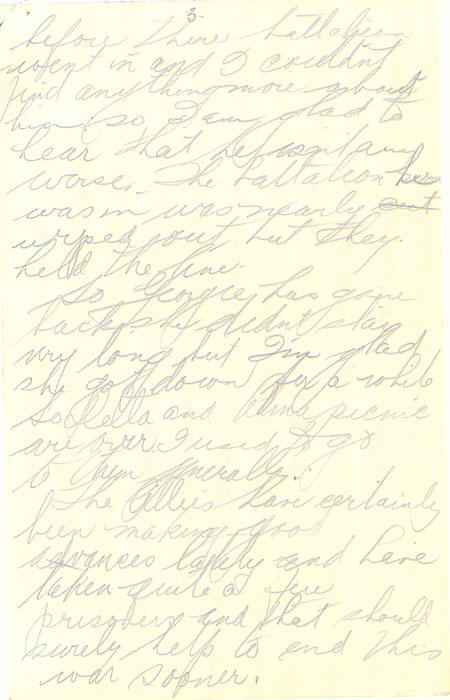 3
before there battalion
went in and I couldnt
find anything more about
him, so I am glad to
hear that he isnt any
worse. The battalion he
was in was nearly cut
wiped out but they
held the line.
So Georgie has gone
back, she didnt stay
very long but I'm glad
she got down for a while
So Della and Alma picnic
are over I used to go
to them generally.
The Allies have certainly
been making good
advances lately and have
taken quite a few
prisoners and that should
surely help to end this
war sooner.